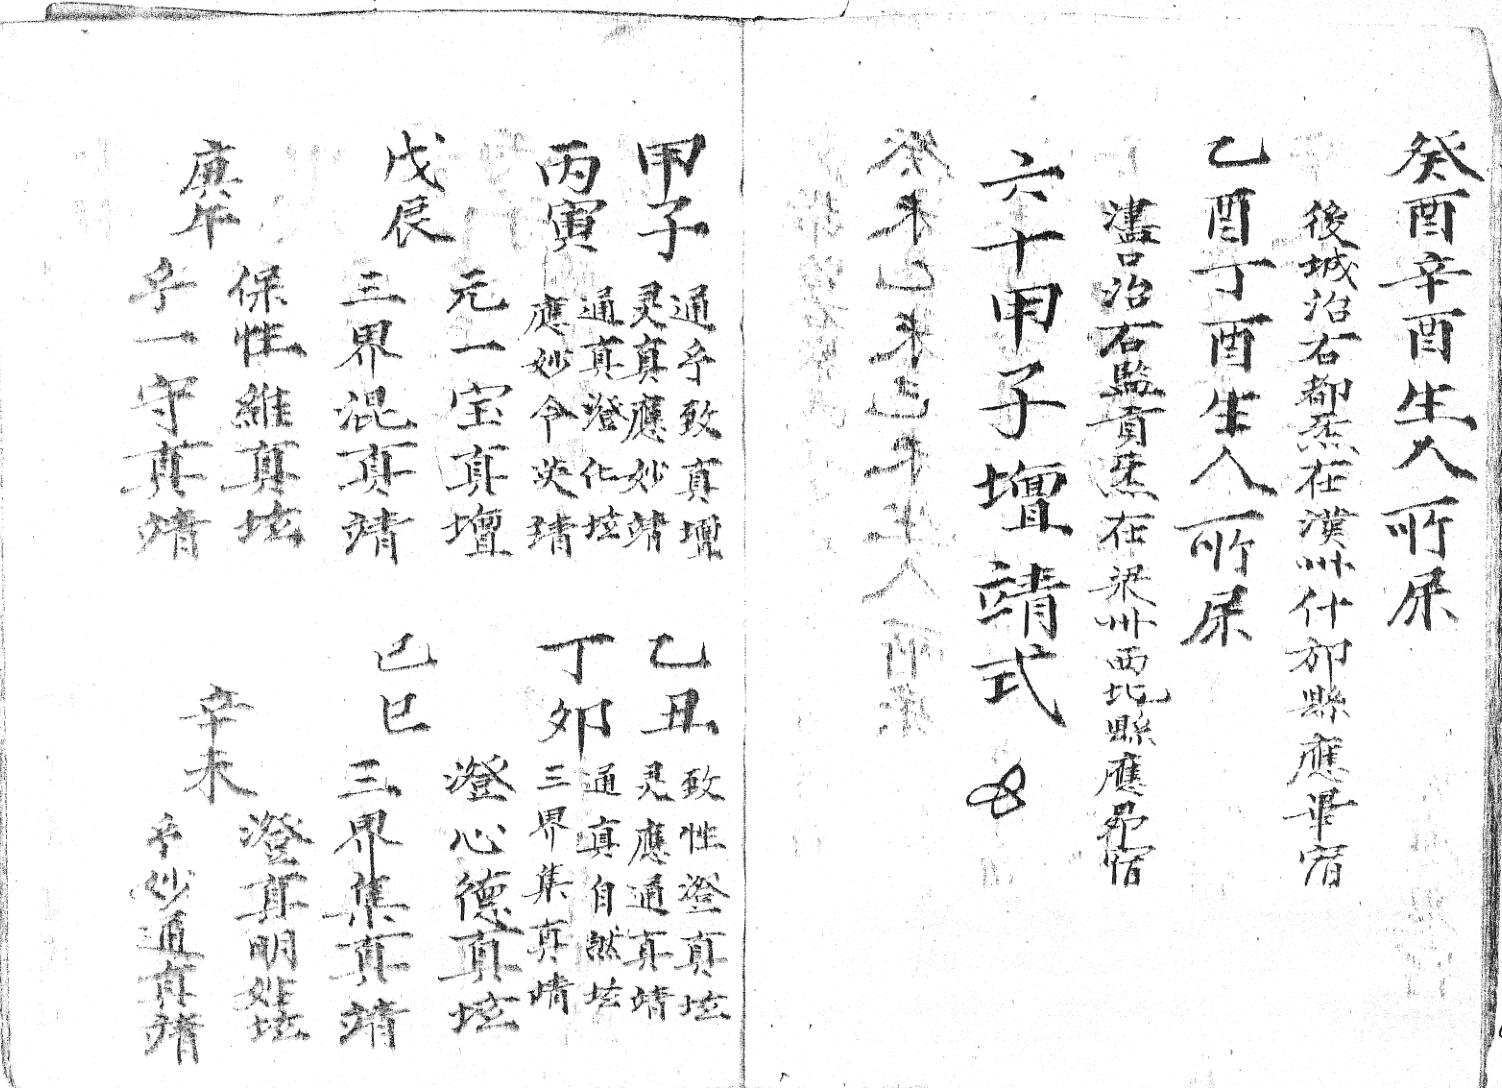 癸酉辛酉生人所屎
後城治右都炁在漢州什邡縣應畢宿
乙酉丁酉生人所屎
濜口治右監貢炁在梁州西北縣應昴宿
六十甲子壇靖式
癸未己未己年生人所屎
甲子
通乎致真壇
灵真應妙靖
乙丑
致性澄真坛
灵應通真靖
丙寅
通真澄化坛
應妙令炎靖
丁卯
通真自然坛
三界集真靖
戊辰
元一宝真壇
三界混真靖
己巳
澄心德真坛
三界集真靖
庚午
保性維真坛
乎一守真靖
辛未
澄真明坛
乎妙通真靖